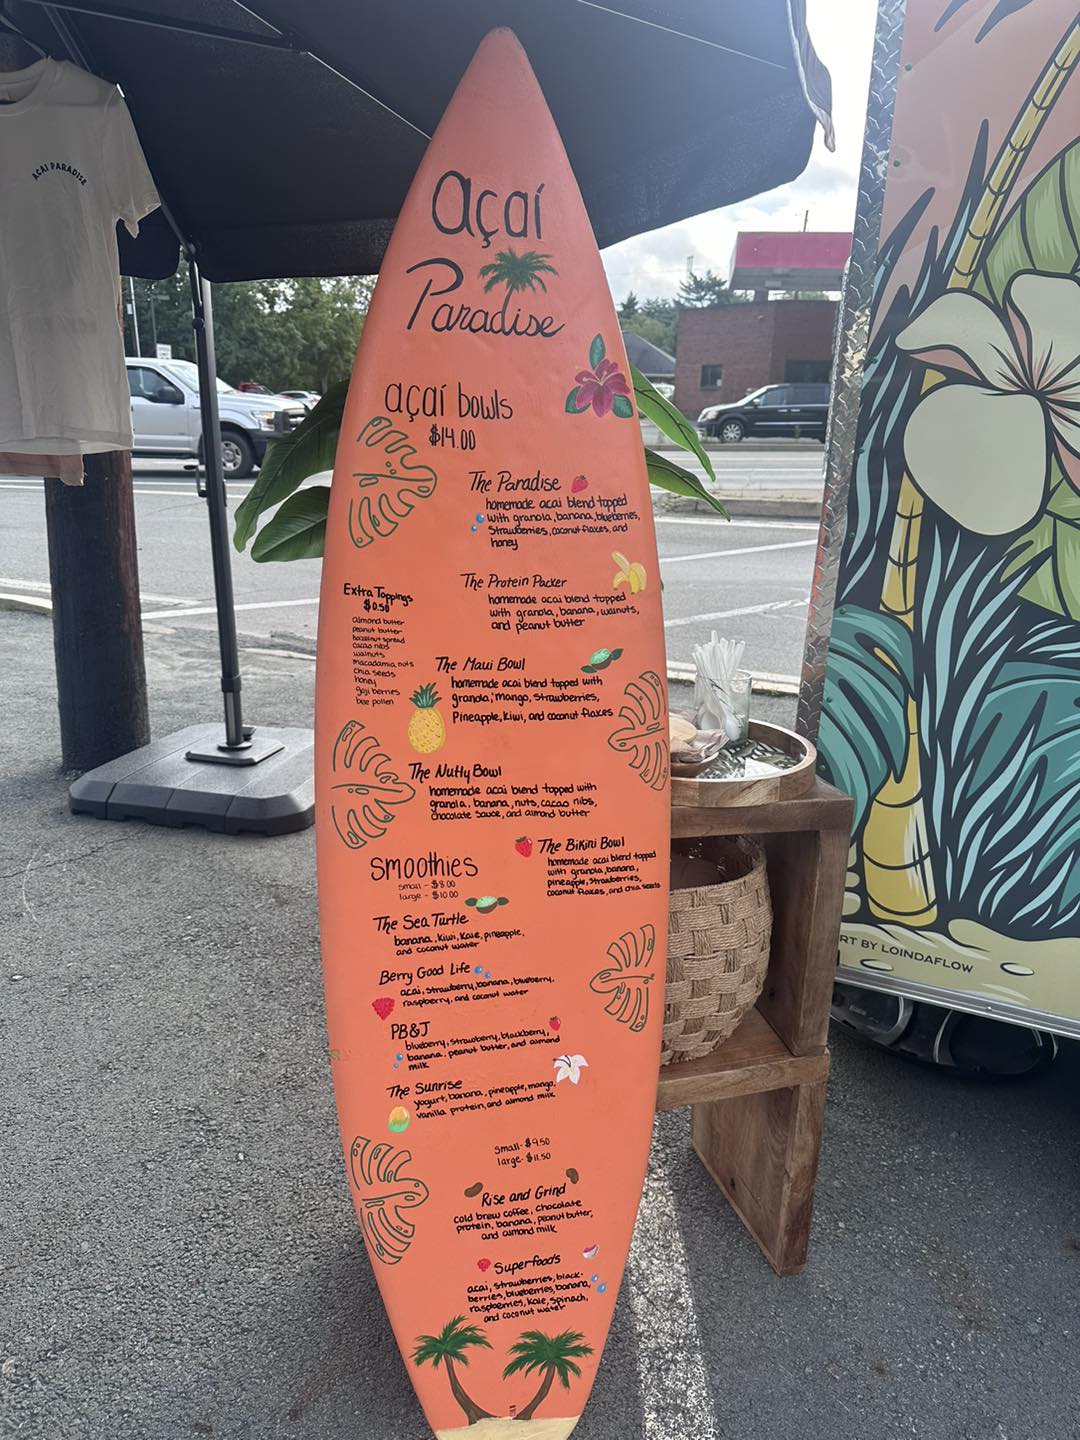 AÇAI PARADISE
açaí
Paradise
açaí bowls
$14.00
The Paradise
homemade acai blend topped
with granola, banana, blueberries,
Strawberries, coconut flakes, and
honey
The Protein Packer
homemade acai blend topped
with granola, banana, walnuts,
and peanut butter
Extra Toppings
$0.50
almond butter
peanut butter
hazelnut spread
cacao nibs
walnuts
macadamia nuts
chia seeds
honey
goji berries
bee pollen
The Maui Bowl
homemade acai blend topped with
granola, mango, strawberries,
Pineapple, kiwi, and coconut flakes
The Nutty Bowl
homemade acai blend topped with
granola, banana, nuts, cacao nibs,
chocolate sauce, and almond butter
The Bikini Bowl
homemade acai blend topped
with granola, banana,
pineapple, strawberries,
coconut flakes, and chia seeds
smoothies
small - $8.00
large - $10.00
The Sea Turtle
banana, kiwi, kale, pineapple,
and coconut water
Berry Good Life
acai, strawberry, banana, blueberry,
raspberry, and coconut water
PB&J
blueberry, strawberry, blackberry,
banana, peanut butter, and almond
milk
The Sunrise
yogurt, banana, pineapple, mango,
vanilla protein, and almond milk
small - $9.50
large - $11.50
Rise and Grind
cold brew coffee, chocolate
protein, banana, peanut butter,
and almond milk
Superfoods
acai, strawberries, black-
berries, blueberries, banana,
raspberries, kale, spinach,
and coconut water
RT BY LOINDAFLOW